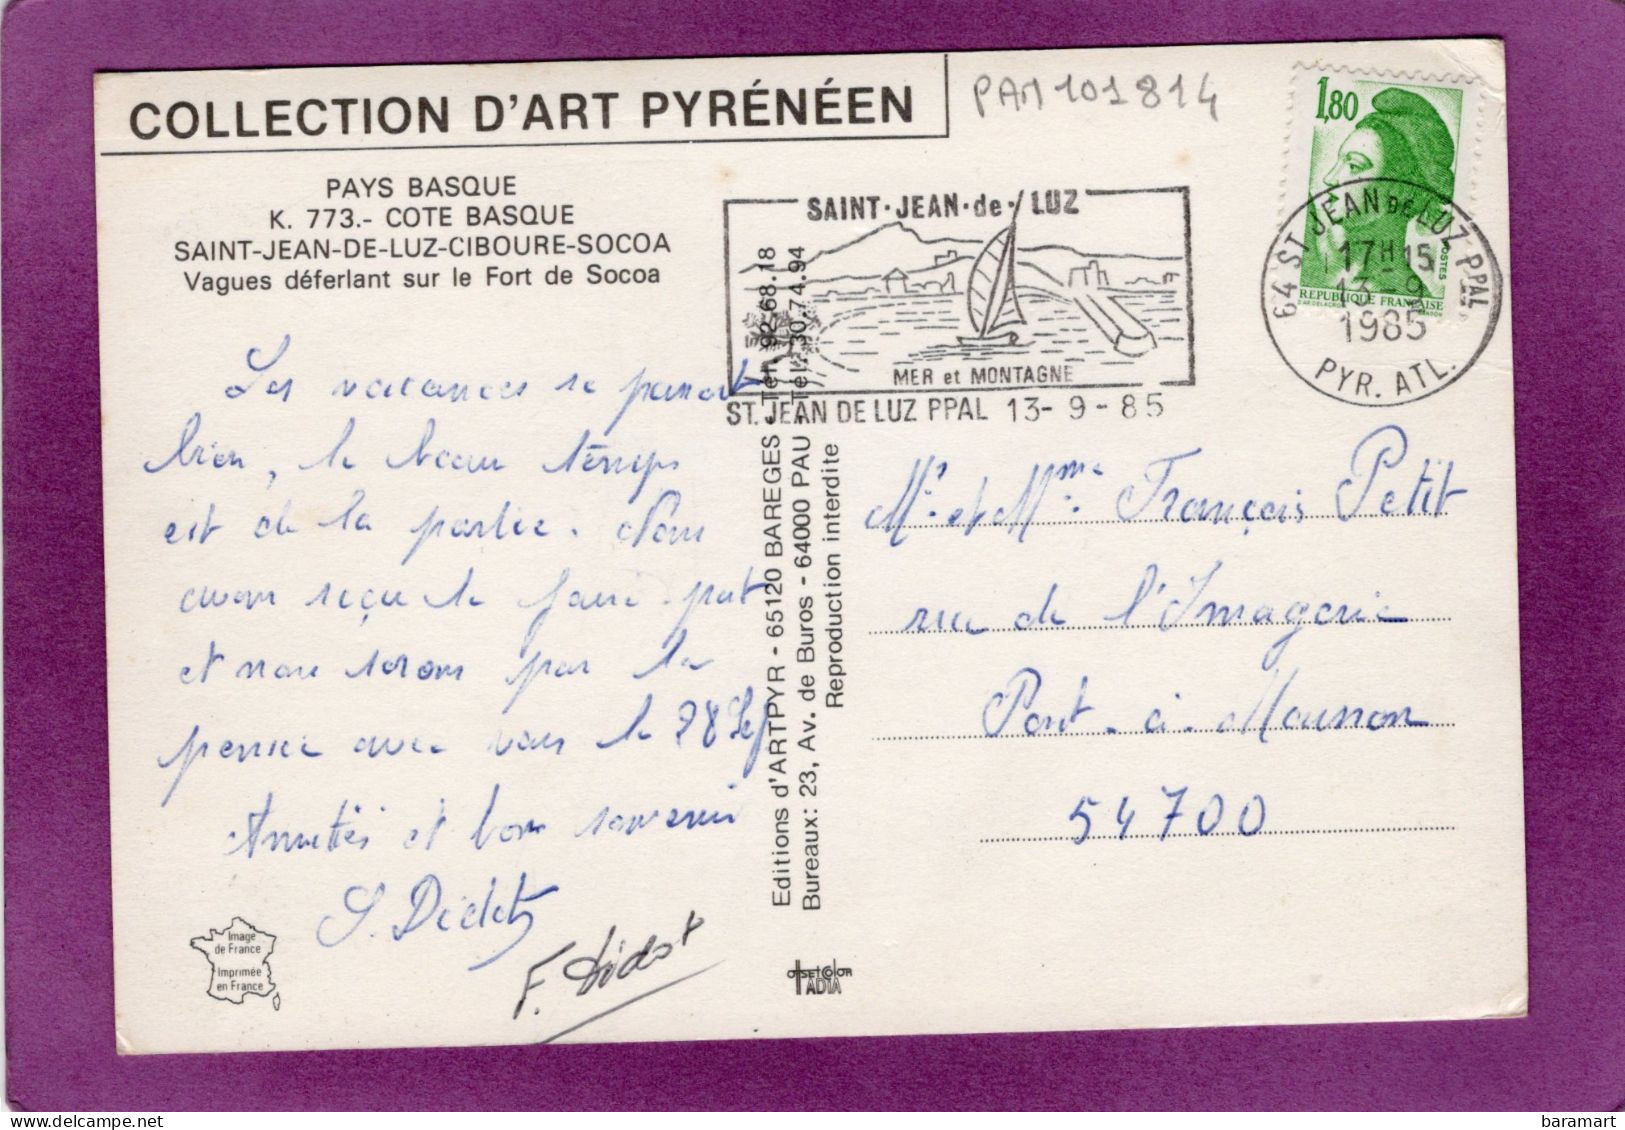 COLLECTION D'ART PYRÉNÉEN
PAM 101814
PAYS BASQUE
K. 773.- COTE BASQUE
SAINT-JEAN-DE-LUZ-CIBOURE-SOCOA
Vagues déferlant sur le Fort de Socoa
1,80
POSTES
REPUBLIQUE FRANÇAISE
SAINT-JEAN-de-LUZ
MER et MONTAGNE
ST. JEAN DE LUZ PPAL 13-9-85
64 ST JEAN DE LUZ PPAL
17H15
13-9
1985
PYR. ATL.
Les vacances se passent
bien, le beau temps
est de la partie. Nous
avons reçu le faire-part
et nous serons par la
pensée avec vous le 28 Sept
Amitiés et bon souvenir
F. Didot
Editions d'ARTPYR - 65120 BAREGES - Tél. 92.68.18
Bureaux: 23, Av. de Buros - 64000 PAU - Tél. 30.74.94
Reproduction interdite
Mr. et Mme François Petit
rue de l'Imagerie
Pont-à-Mousson
54700
Image
de France
Imprimée
en France
OFFSETCOLOR
ADIA
baramart